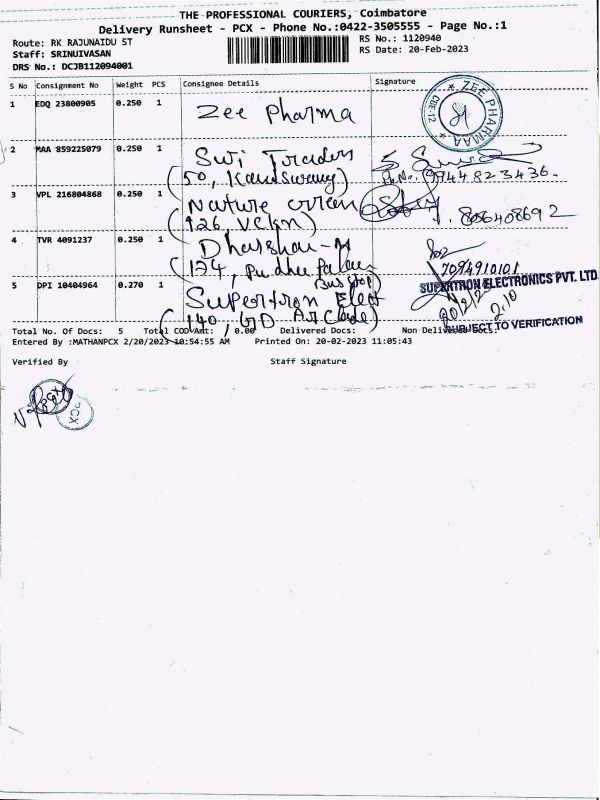 THE PROFESSIONAL COURIERS, Coimbatore
Delivery Runsheet - PCX - Phone No.:0422-3505555 - Page No.:1
Route: RK RAJUNAIDU ST
RS No.: 1120940
Staff: SRINUIVASAN
RS Date: 20-Feb-2023
DRS No.: DCJB112094001
S No Consignment No Weight PCS Consignee Details Signature
1 EDQ 23800905 0.250 1 Zee Pharma
ZEE PHARMAA
CBE-12
2 MAA 859225079 0.250 1 Swi Traders
(50, 9944823436.
3 VPL 216804868 0.250 1 Nature Green
(126,
4 TVR 4091237 0.250 1 Dharshan-M
(124, Pudhu
7094910101
Bus stop)
5 DPI 10404964 0.270 1 Supertron Elect
SUPERTRON ELECTRONICS PVT. LTD
(140, GD Arcade)
2.10
SUBJECT TO VERIFICATION
Total No. Of Docs: 5 Total COD Amt: 0.00 Delivered Docs: Non Delivered Docs:
Entered By :MATHANPCX 2/20/2023 10:54:55 AM Printed On: 20-02-2023 11:05:43
Verified By Staff Signature
PCX